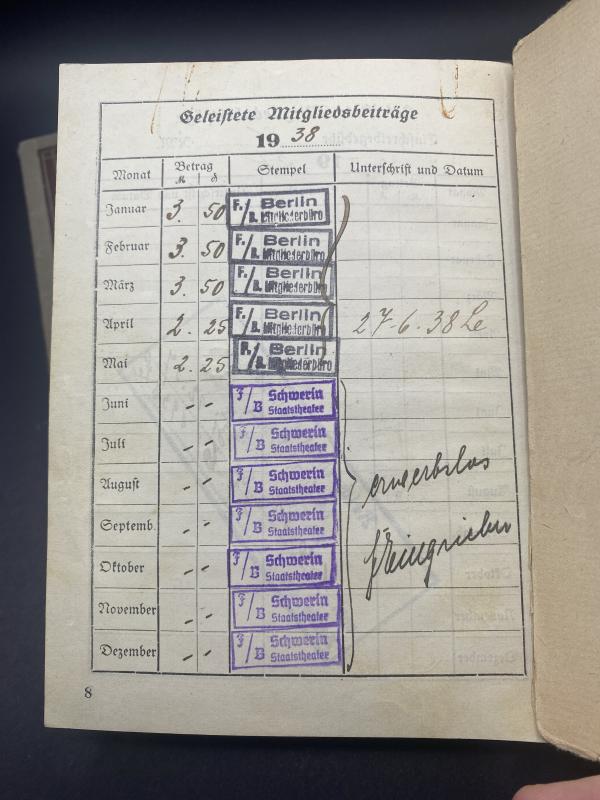 Geleistete Mitgliedsbeiträge
1938
Monat Betrag Stempel Unterschrift und Datum
ℳ ₰
Januar 3. 50 F./B. Berlin Mitgliederbüro
Februar 3. 50 F./B. Berlin Mitgliederbüro
März 3. 50 F./B. Berlin Mitgliederbüro
April 2. 25 F./B. Berlin Mitgliederbüro 27.6.38 Le
Mai 2. 25 F./B. Berlin Mitgliederbüro
Juni - - F/B Schwerin Staatstheater
Juli - - F/B Schwerin Staatstheater
August - - F/B Schwerin Staatstheater erwerbslos
Septemb. - - F/B Schwerin Staatstheater
Oktober - - F/B Schwerin Staatstheater
November - - F/B Schwerin Staatstheater
Dezember - - F/B Schwerin Staatstheater
8